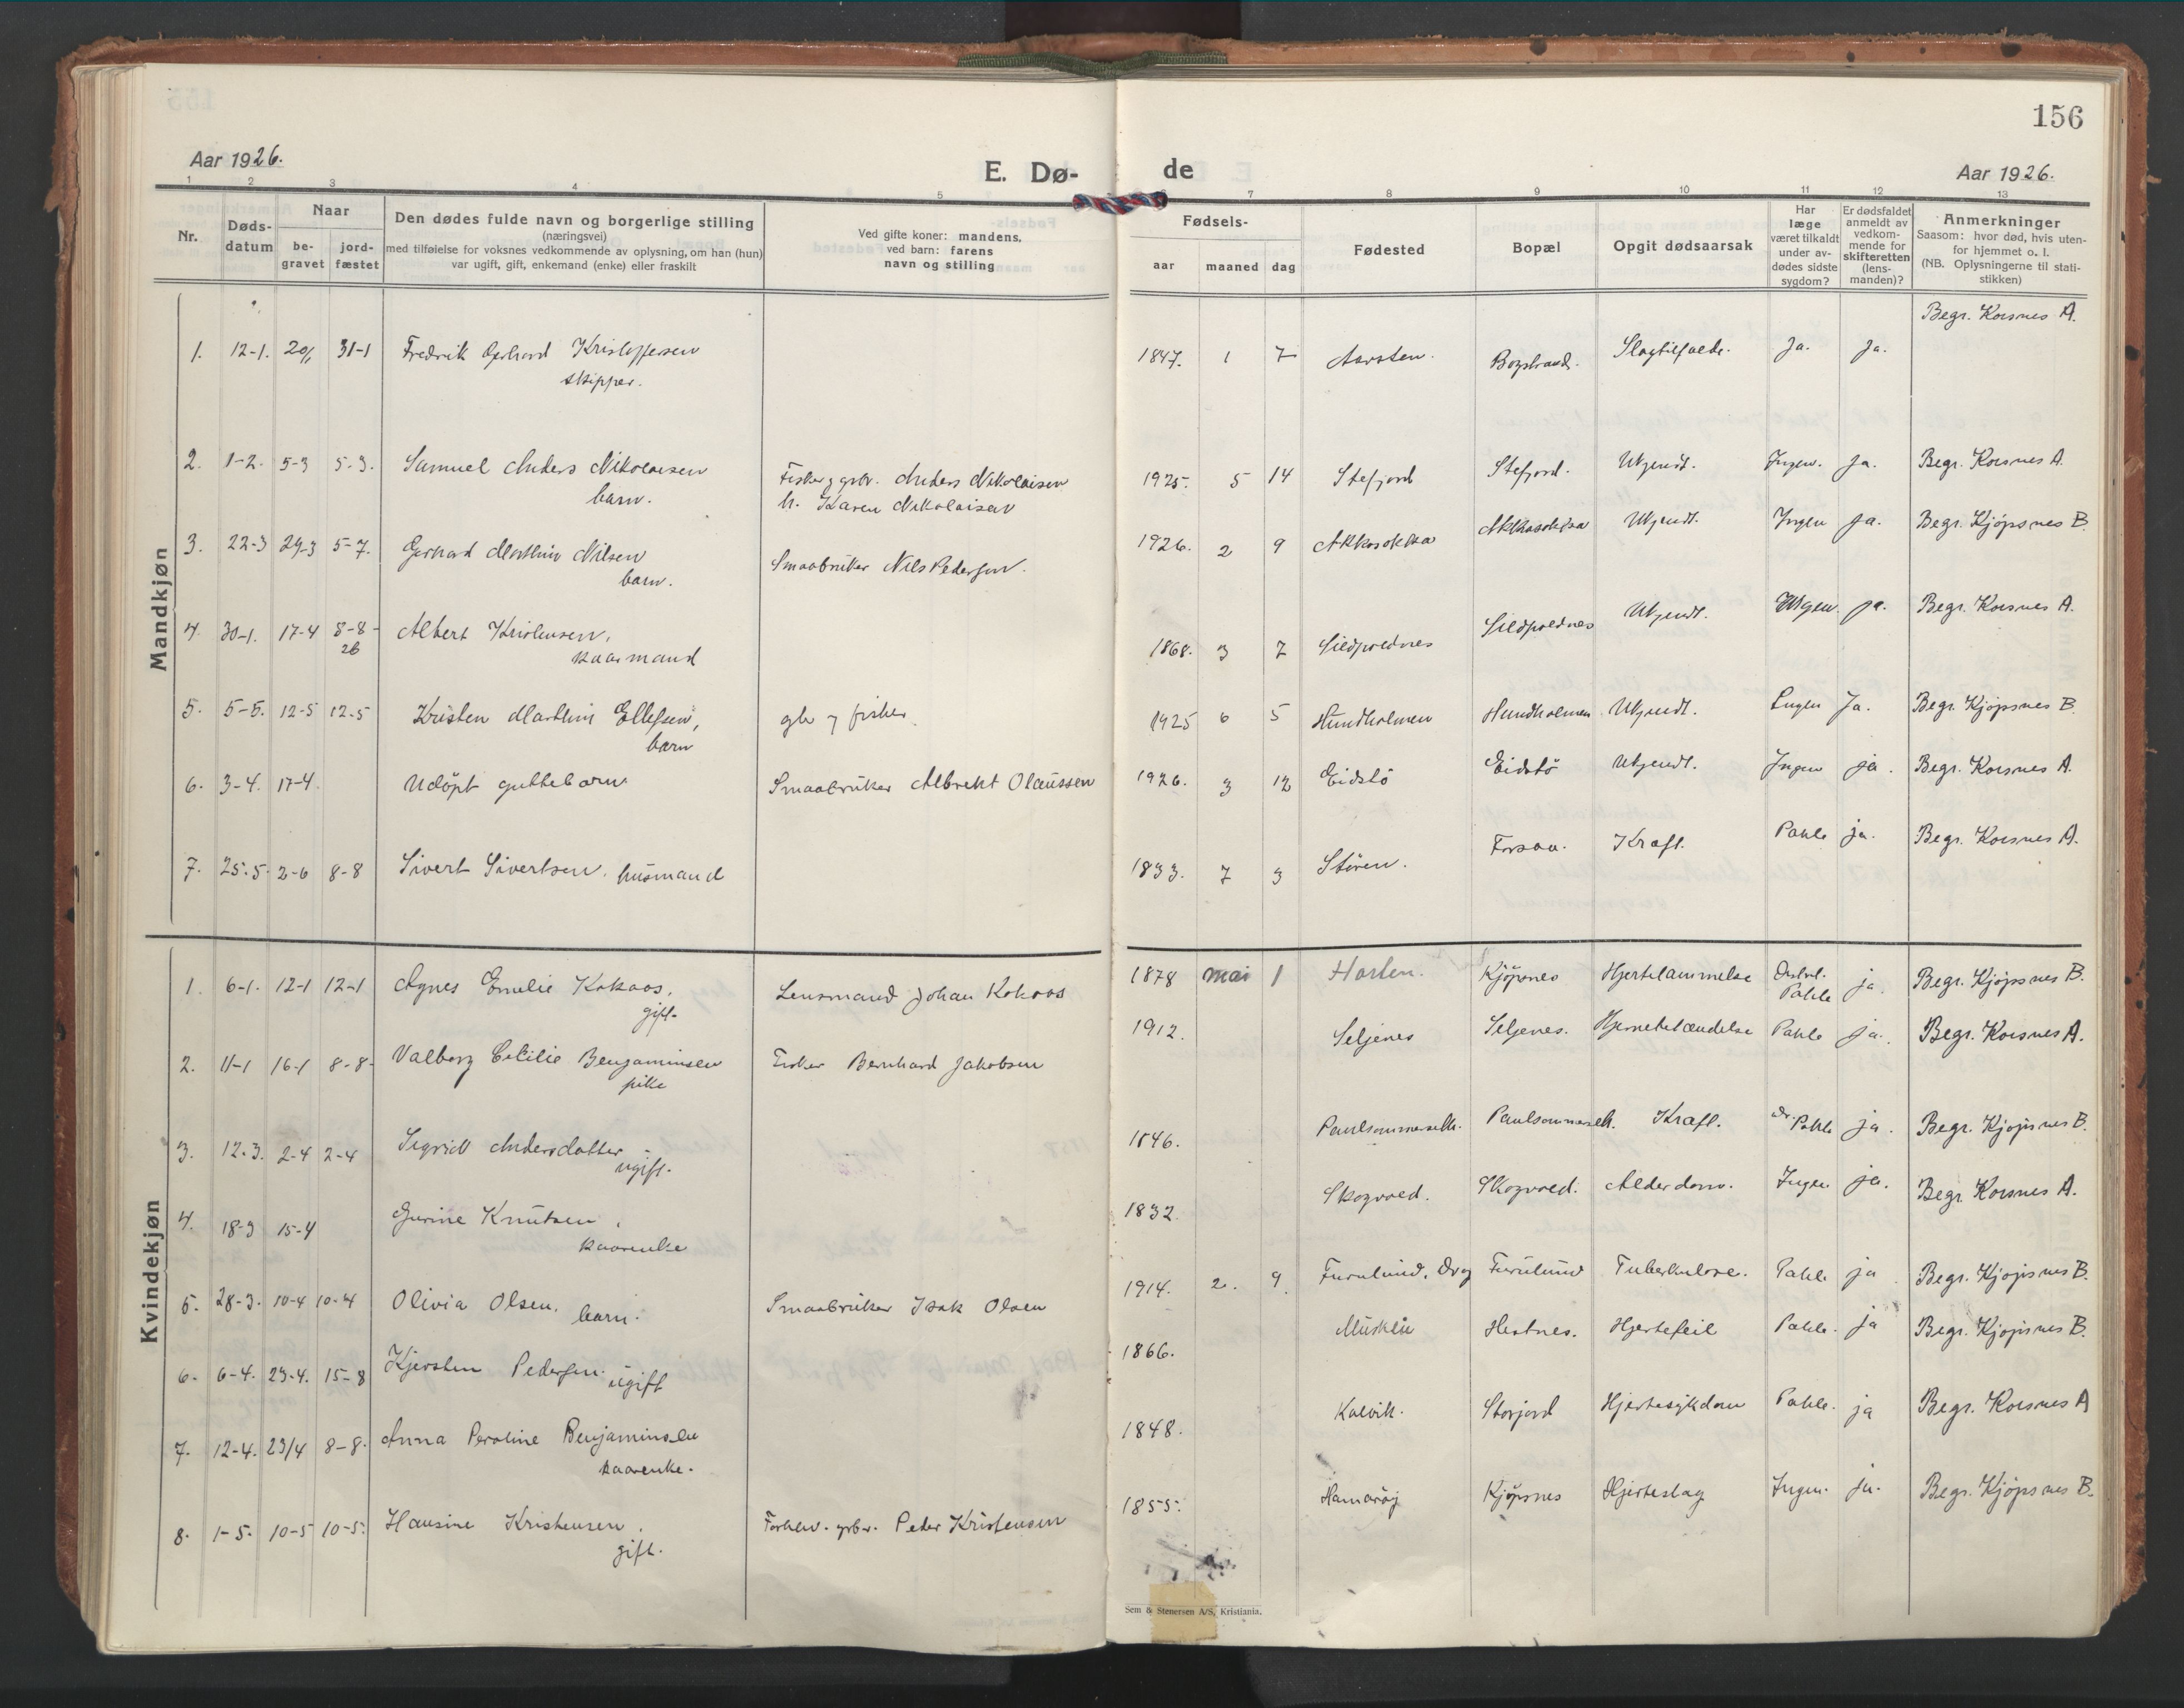 156
Aar 1926.
E. Dø-
de
Aar 1926.
1 2 3 4 5 7 8 9 10 11 12 13
Nr.
Døds-
datum
Naar
be-
gravet
jord-
fæstet
Den dødes fulde navn og borgerlige stilling
(næringsvei)
med tilføielse for voksnes vedkommende av oplysning, om han (hun)
var ugift, gift, enkemand (enke) eller fraskilt
Ved gifte koner: mandens,
ved barn: farens
navn og stilling
Fødsels-
aar
maaned
dag
Fødested
Bopæl
Opgit dødsaarsak
Har
læge
været tilkaldt
under av-
dødes sidste
sygdom?
Er dødsfaldet
anmeldt av
vedkom-
mende for
skifteretten
(lens-
manden)?
Anmerkninger
Saasom: hvor død, hvis uten-
for hjemmet o. l.
(NB. Oplysningerne til stati-
stikken)
Mandkjøn
1. 12-1. 20/1 31-1 Fredrik Gerhard Kristoffersen 1847. 1 7 Slagtilfælde. Ja. Ja. Begr. Korsnes A.
skipper.
2. 1-2. 5-3 5-3. Samuel Anders Nikolaisen Fisker gbr. Anders Nikolaisen 1925. 5 14 Stefjord Stefjord. Ukjendt. Ingen. Ja. Begr. Korsnes A.
barn. h. Karen Nikolaisen
3. 22-3 29-3 5-7. Gerhard Marthin Nilsen Smaabruker Nils Pedersen. 1926. 2 9 Ukjendt. Ingen Ja. Begr. Kjöpsnes B.
barn.
4. 30-1. 17-4 8-8- Albert Kristensen, 1868. 3 7 Ukjendt. Ingen ja. Begr. Korsnes A.
26 kaarmand
5. 5-5. 12-5 12-5 Kristen Marthin Ellefsen, gbr fisker. 1925 6 5 Hundholmen Hundholmen Ukjendt. Ingen Ja. Begr. Kjöpsnes B.
barn
6. 3-4. 17-4 Udöpt guttebarn Smaabruker Albrekt Olaussen 1926. 3 12 Eidstö Eidstö Ukjendt. Ingen ja. Begr. Korsnes A.
7. 25-5. 2-6 8-8 Sivert Sivertsen. husmand 1833. 7 3 Stören. Forsaa. Kræft. Pahle ja. Begr. Korsnes A.
Kvindekjøn
1. 6-1. 12-1 12-1 Agnes Emelie Kokaas, Lensmand Johan Kokaas 1878 mai 1 Kjöpsnes Hjertelammelse Pahle ja. Begr. Kjöpsnes B.
gift.
2. 11-1 16-1 8-8- Valborg Cecilie Benjaminsen Fisker Bernhard Jakobsen 1912. Seljenes Seljenes. Hjernebetændelse Pahle ja. Begr. Korsnes A.
pike
3. 12-3. 2-4 2-4 Sigrid Andersdatter 1846. Kræft. Dr. Pahle ja. Begr. Kjöpsnes B.
ugift.
4. 18-3 15-4 Gurine Knutsen, 1832. Skogvold. Skogvold. Alderdom. Ingen ja. Begr. Korsnes A.
kaarenke
5. 28-3. 10-4 10-4 Olivia Olsen, barn. Smaabruker Isak Olsen 1914. 2. 9. Furulund, Drag Furulund Tuberkulose. Pahle ja. Begr. Kjöpsnes B.
6. 6-4. 23-4. 15-8 Kjersten Pedersen. ugift 1866. Hestnes. Hjertefeil Pahle. ja Begr. Kjöpsnes B.
7. 12-4. 23/4 8-8. Anna Peroline Benjaminsen 1848. Kalvik. Storjord Hjertesykdom Pahle. ja Begr. Korsnes A
kaarenke.
8. 1-5. 10-5 10-5. Hansine Kristensen. Peder Kristensen 1855. Hamaröy Kjöpsnes Hjerteslag Ingen. ja. Begr. Kjöpsnes B.
gift.
Sem & Stenersen A/S, Kristiania.